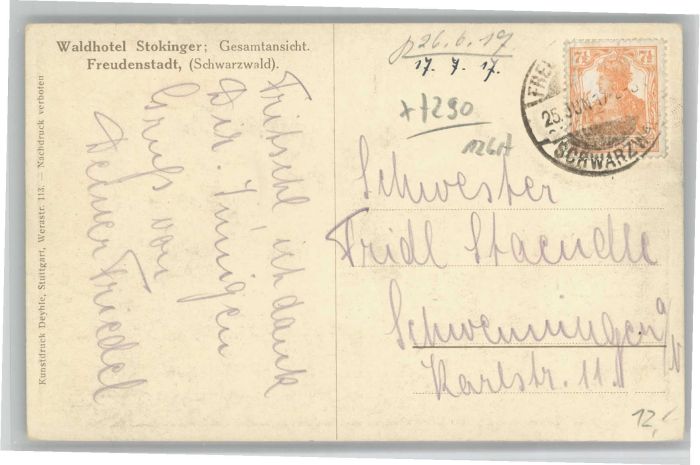 Waldhotel Stokinger; Gesamtansicht.
Freudenstadt, (Schwarzwald).
Kunstdruck Deyhle, Stuttgart, Werastr. 113. — Nachdruck verboten
Fritschl ich dank
Dir. Innigen
Gruß von
Deiner Friedel
26.6.17
17. 7. 17.
1290
126A
7½ 7½
FREU
25.JUN.17
SCHWARZW
Schwester
Fridl Staendle
Schwenningen a/N
Karlstr. 11.
12,-